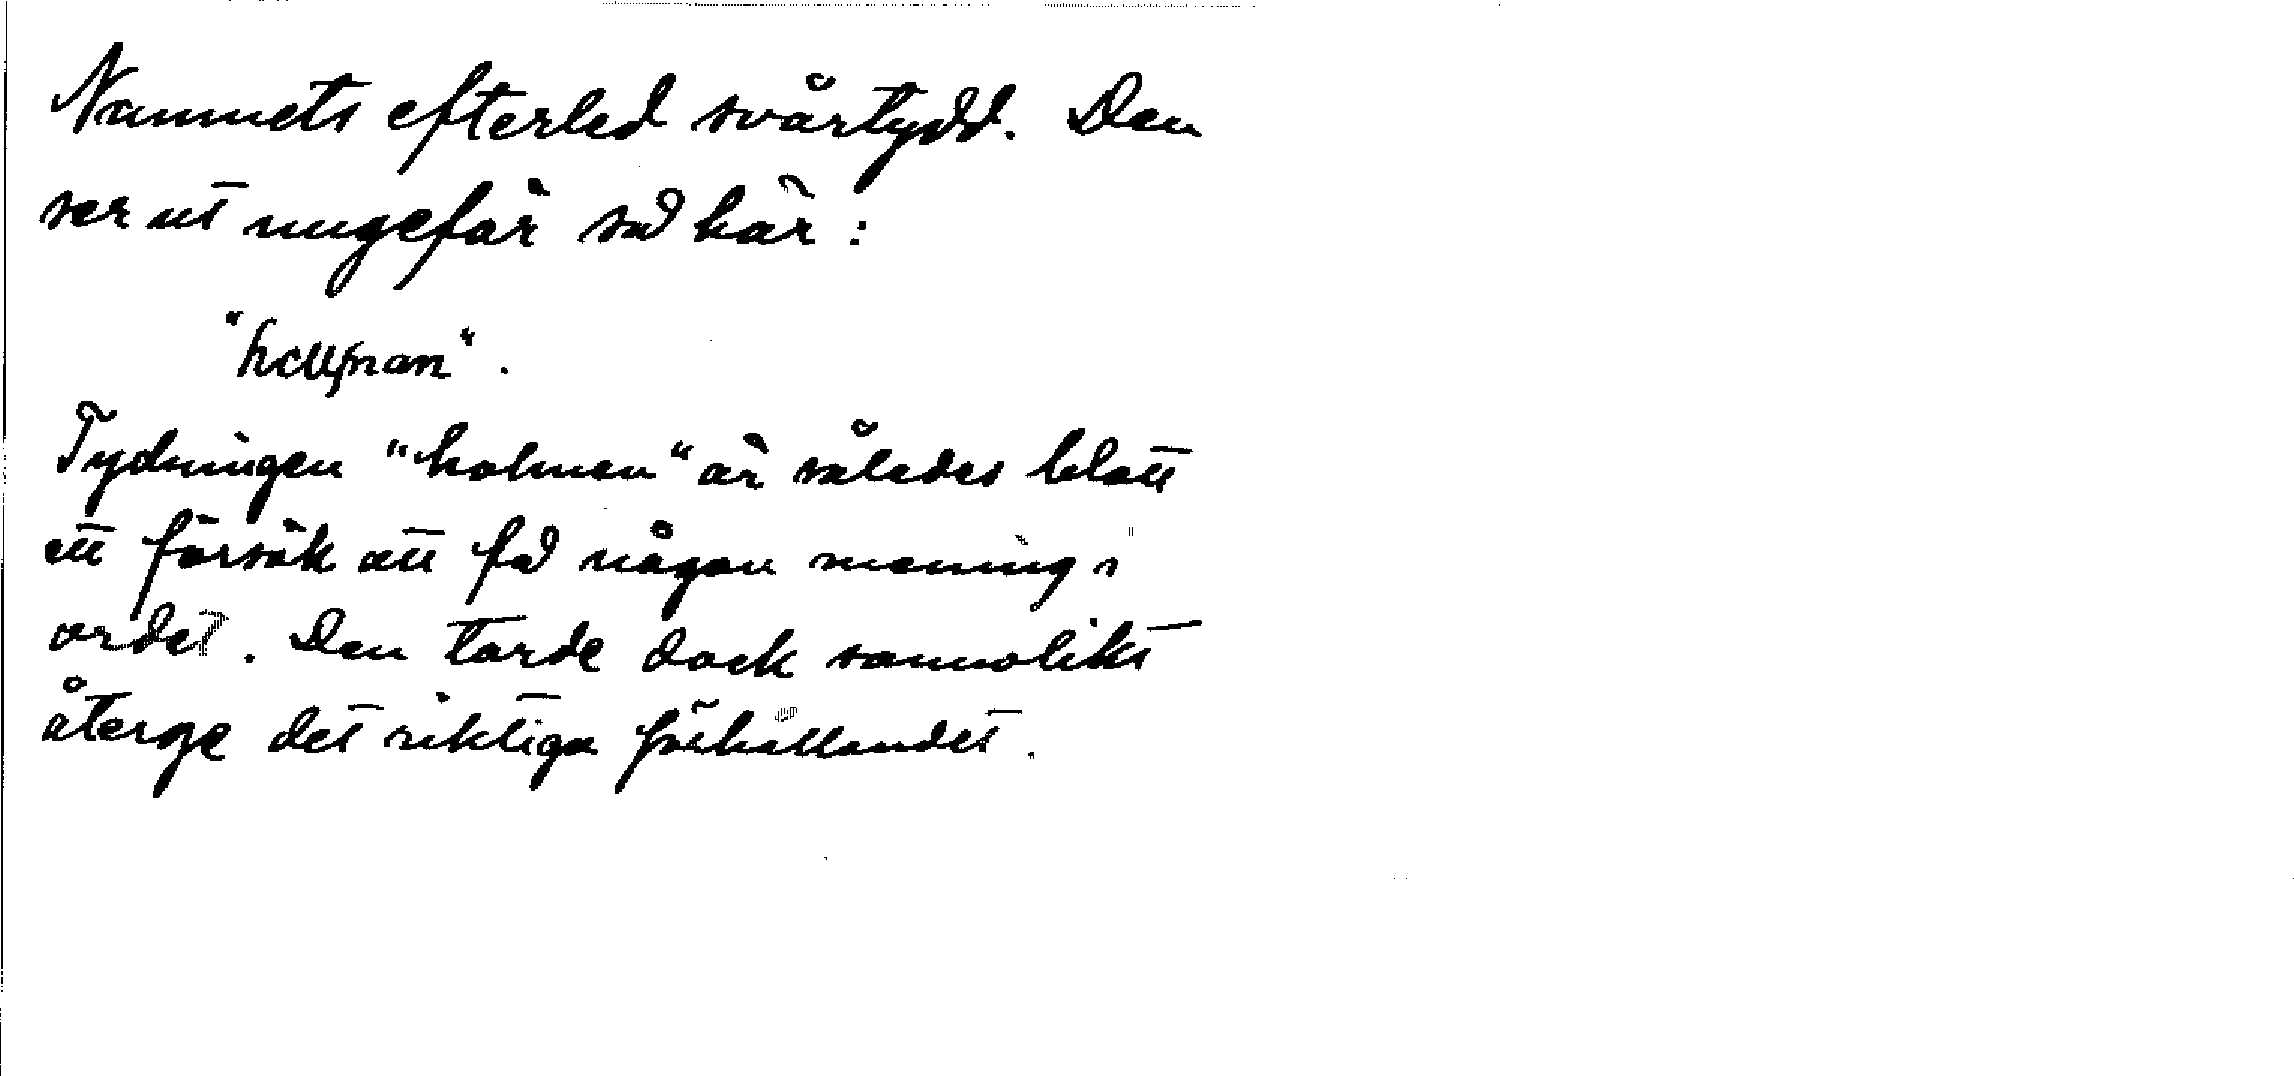 Namnets efterled svårtydd. Den
ser ut ungefär så här:
Tydningen "holmen" är således blott
ett försök att få någon mening i
ordet. Den torde dock sannolikt
återge det riktiga förhållandet.